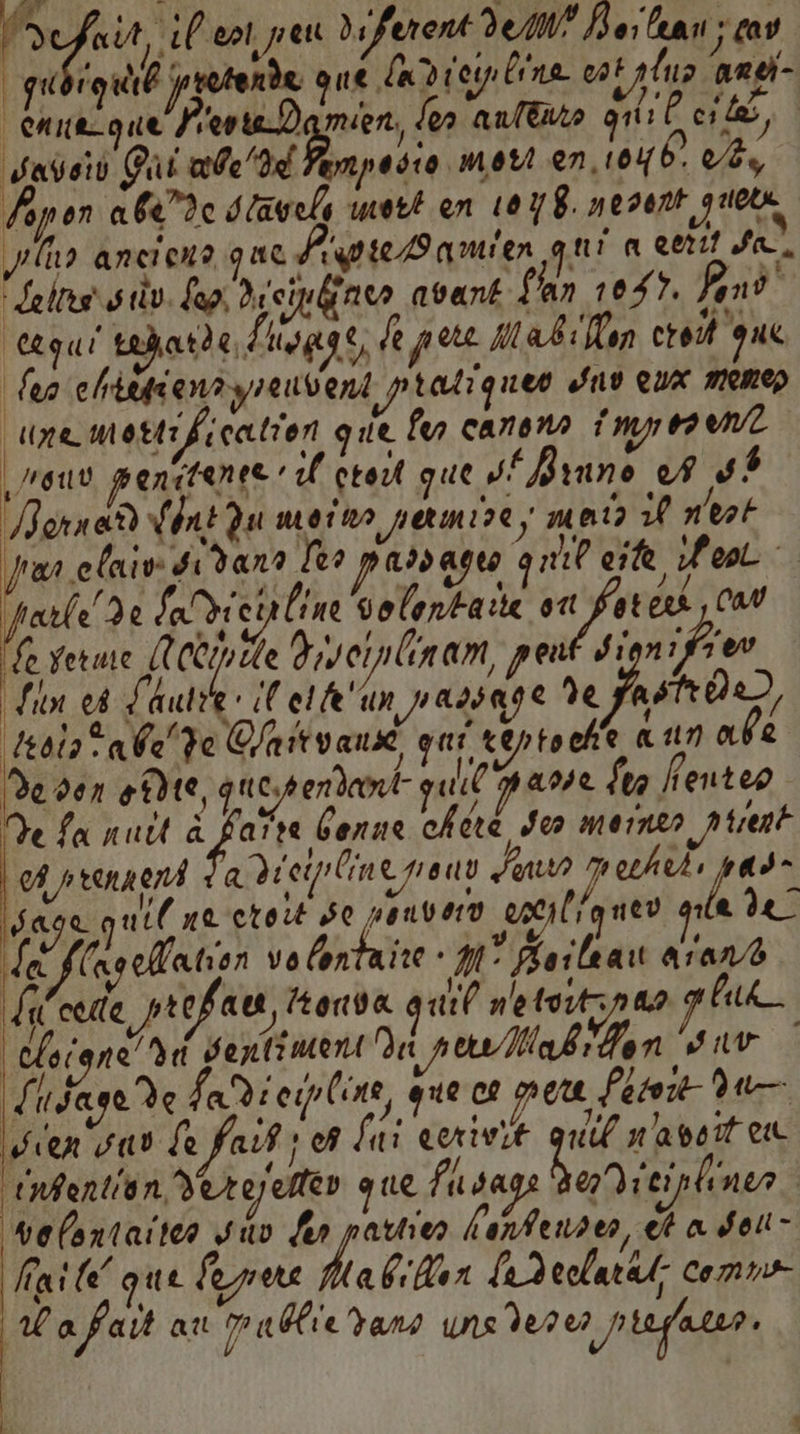 De fait, il est peu diferent de Mr. Boileau; car
quoiqu'il pretende que la dicipline est plus anci-
enne que Pierre Damien, les auteurs qu'il cite,
savoir Gui abe de Pompose mort en 1046. et
Popon abe de Stavels mort en 1048. ne sont guere
plus anciens que Pierre Damien qui a ecrit sa
letre sur les diciplines avant l'an 1057. Pour
ce qui regarde l'usage, le pere Mabillon croit que
les chretiens peuvent pratiquer sur eux memes
une mortification que les canons imposent
pour penitence: il croit que St. Bruno et St.
Bernard l'ont du moins permise; mais il n'est
pas clair si dans les passages qu'il cite il est
parle de la dicipline volontaire ou forcée, car
le terme Accipite disciplinam, peut signifier
l'un et l'autre: il cite un passage de
trois.e abe de Clairvaux, qui reproche a un abe
de son ordre, que pendant qu'il passe les heures
de la nuit à faire bonne chere ses moines prient
et prennent la dicipline pour leurs pechez: pas-
sage qu'il ne croit se pouvoir expliquer que de
la flagellation volontaire. Mr. Boileau aiant
lu cette preface, trouva qu'il n'etoit pas plus
eloigne du sentiment du pere Mabillon sur
l'usage de la dicipline, que ce pere l'etoit du
sien sur le fait; et lui ecrivit qu'il n'avoit eu
intention de rejetter que l'usage des diciplines
volontaires sur les parties honteuses, et a sou-
haité que le pere Mabillon le declarat, comme
il a fait au public dans une de ses prefaces.